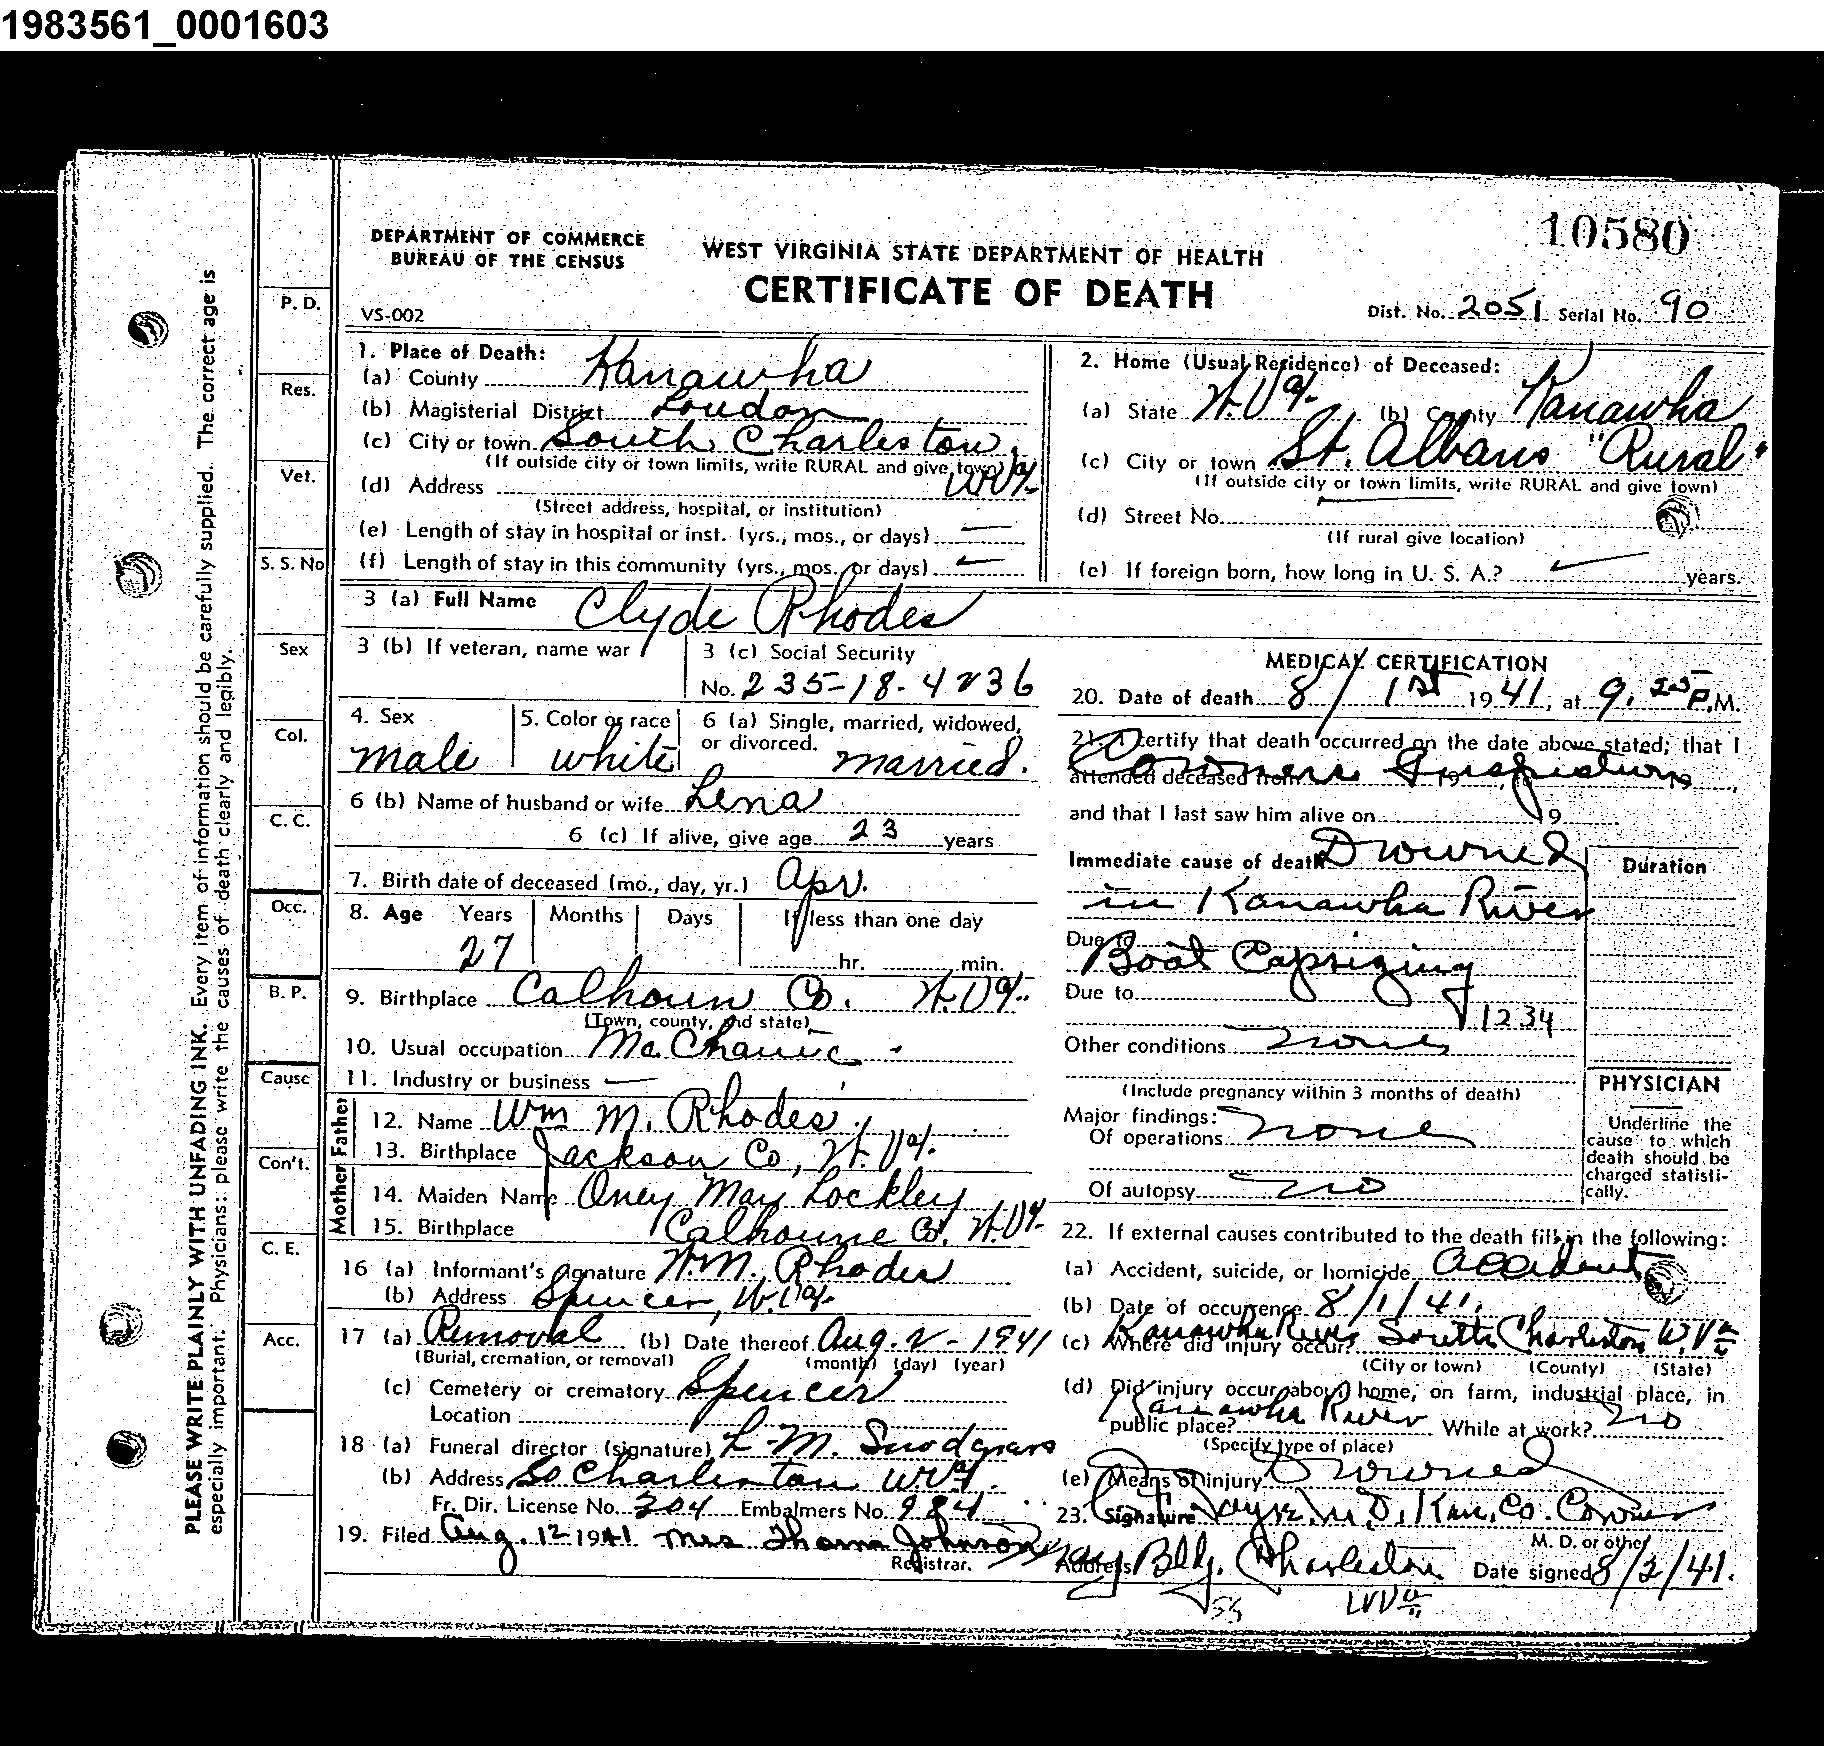 1983561_0001603
10580
DEPARTMENT OF COMMERCE
BUREAU OF THE CENSUS
WEST VIRGINIA STATE DEPARTMENT OF HEALTH
CERTIFICATE OF DEATH
VS-002
Dist. No. 2051 Serial No. 90
PLEASE WRITE PLAINLY WITH UNFADING INK. Every item of information should be carefully supplied. The correct age is
especially important. Physicians: please write the causes of death clearly and legibly.
P. D.
Res.
Vet.
S. S. No
Sex
Col.
C. C.
Occ.
B. P.
Cause
Con't.
C. E.
Acc.
1. Place of Death:
(a) County Kanawha
(b) Magisterial District Loudon
(c) City or town South Charleston,
(If outside city or town limits, write RURAL and give town)
(d) Address W Va.
(Street address, hospital, or institution)
(e) Length of stay in hospital or inst. (yrs., mos., or days) —
(f) Length of stay in this community (yrs., mos. or days) —
2. Home (Usual Residence) of Deceased:
(a) State W. Va. (b) County Kanawha
(c) City or town St. Albans "Rural"
(If outside city or town limits, write RURAL and give town)
(d) Street No.
(If rural give location)
(e) If foreign born, how long in U. S. A.? years.
3 (a) Full Name Clyde Rhodes
3 (b) If veteran, name war
3 (c) Social Security
No. 235-18-4236
4. Sex
male
5. Color or race
white
6 (a) Single, married, widowed,
or divorced. married.
6 (b) Name of husband or wife Lena
6 (c) If alive, give age 23 years
7. Birth date of deceased (mo., day, yr.) Apr.
8. Age Years Months Days If less than one day
27 hr. min.
9. Birthplace Calhoun Co. W. Va.
(Town, county, and state)
10. Usual occupation Mechanic
11. Industry or business —
Father
12. Name Wm M. Rhodes
13. Birthplace Jackson Co, W. Va.
Mother
14. Maiden Name Oney May Lockley
15. Birthplace Calhoune Co. W. Va.
16 (a) Informant's signature W. M. Rhodes
(b) Address Spencer, W. Va.
17 (a) Removal (b) Date thereof Aug. 2 - 1941
(Burial, cremation, or removal) (month) (day) (year)
(c) Cemetery or crematory Spencer
Location
18 (a) Funeral director (signature) L. M. Snodgrass
(b) Address So Charleston W. Va.
Fr. Dir. License No. 304 Embalmers No. 984
19. Filed Aug. 12 1941 Mrs Johnson
Registrar.
MEDICAL CERTIFICATION
20. Date of death 8/1st 1941, at 9.25 P.M.
21. I certify that death occurred on the date above stated; that I
attended deceased from 19 , 19 ,
Coroners Inspection
and that I last saw him alive on 19
Immediate cause of death Drowned
in Kanawha River
Duration
Due to
Boat Capsizing
Due to
1234
Other conditions none
(Include pregnancy within 3 months of death)
Major findings:
Of operations none
Of autopsy no
PHYSICIAN
Underline the
cause to which
death should be
charged statisti-
cally.
22. If external causes contributed to the death fill in the following:
(a) Accident, suicide, or homicide Accident
(b) Date of occurrence 8/1/41.
(c) Where did injury occur? Kanawha River South Charleston W. Va
(City or town) (County) (State)
(d) Did injury occur about home, on farm, industrial place, in
public place? Kanawha River While at work? no
(Specify type of place)
(e) Means of injury Drowned
23. Signature M. D. Kan. Co. Coroner
M. D. or other
Address Bldg. Charleston Date signed 8/2/41.
W Va